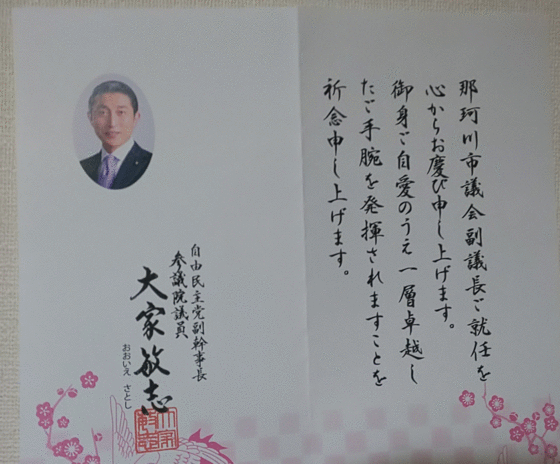 那珂川市議会副議長ご就任を
心からお慶び申し上げます。
御身ご自愛のうえ一層卓越し
たご手腕を発揮されますことを
祈念申し上げます。
自由民主党副幹事長
参議院議員
大家敏志
おおいえ さとし